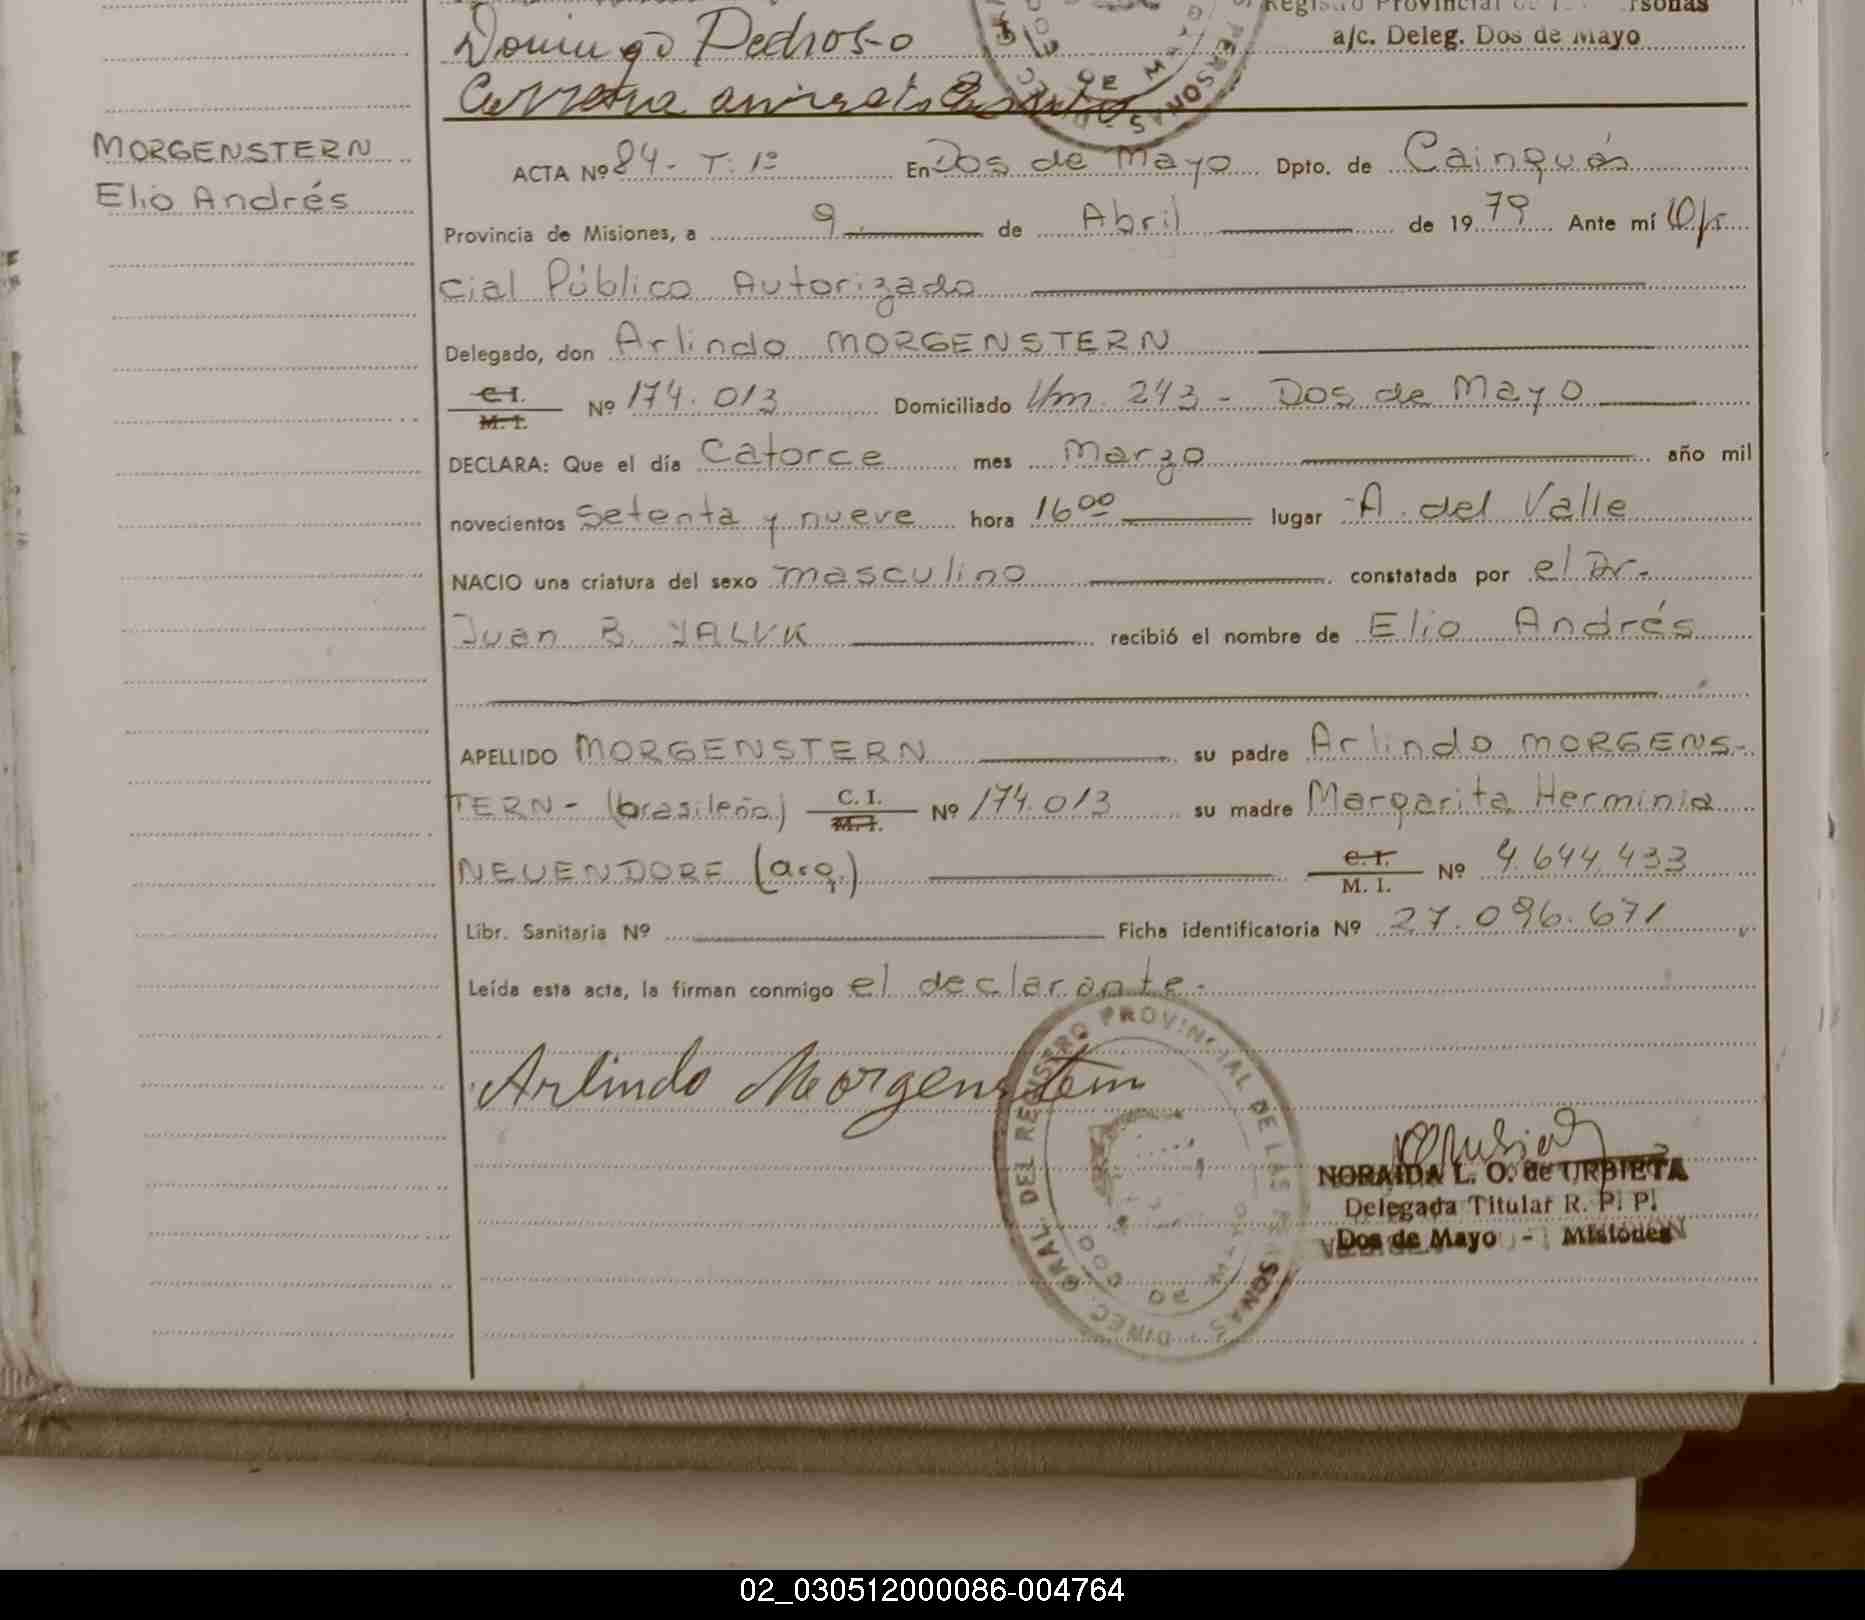 Registro Provincial de las Personas
a/c. Deleg. Dos de Mayo
Domingo Pedroso
MORGENSTERN
Elio Andrés
ACTA Nº 84 - T: 1º En Dos de Mayo Dpto. de Cainguás
Provincia de Misiones, a 9 de Abril de 1979 Ante mí Ofi
cial Público Autorizado
Delegado, don Arlindo MORGENSTERN
C. I.
M. I. Nº 174.013 Domiciliado Km. 243 - Dos de Mayo
DECLARA: Que el día Catorce mes Marzo año mil
novecientos setenta y nueve hora 16 00 lugar A. del Valle
NACIO una criatura del sexo masculino constatada por el Dr.
Juan B. YALUK recibió el nombre de Elio Andrés
APELLIDO MORGENSTERN su padre Arlindo MORGENS-
TERN - (brasileño) C. I. M. I. Nº 174.013 su madre Margarita Herminia
NEUENDORF (arg.) C. I. M. I. Nº 4.644.433
Libr. Sanitaria Nº Ficha identificatoria Nº 27.096.671
Leída esta acta, la firman conmigo el declarante.-
Arlindo Morgenstern
DIREC. GRAL. DEL REGISTRO PROVINCIAL DE LAS PERSONAS
NORAIDA L. O. de URBIETA
Delegada Titular R. P. P.
Dos de Mayo - Misiones
02_030512000086-004764